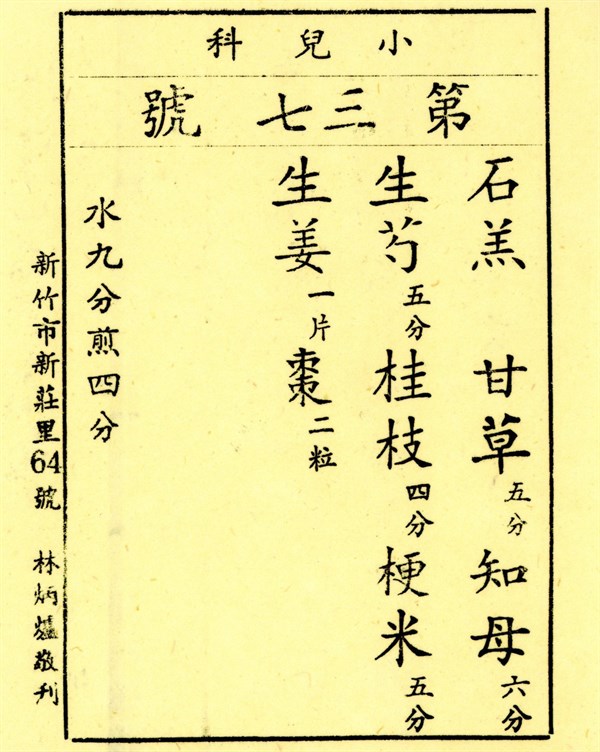 小兒科
第三七號
石羔 甘草五分知母六分
生芍五分桂枝四分梗米五分
生姜一片棗二粒
水九分煎四分
新竹市新莊里64號 林炳敬刊